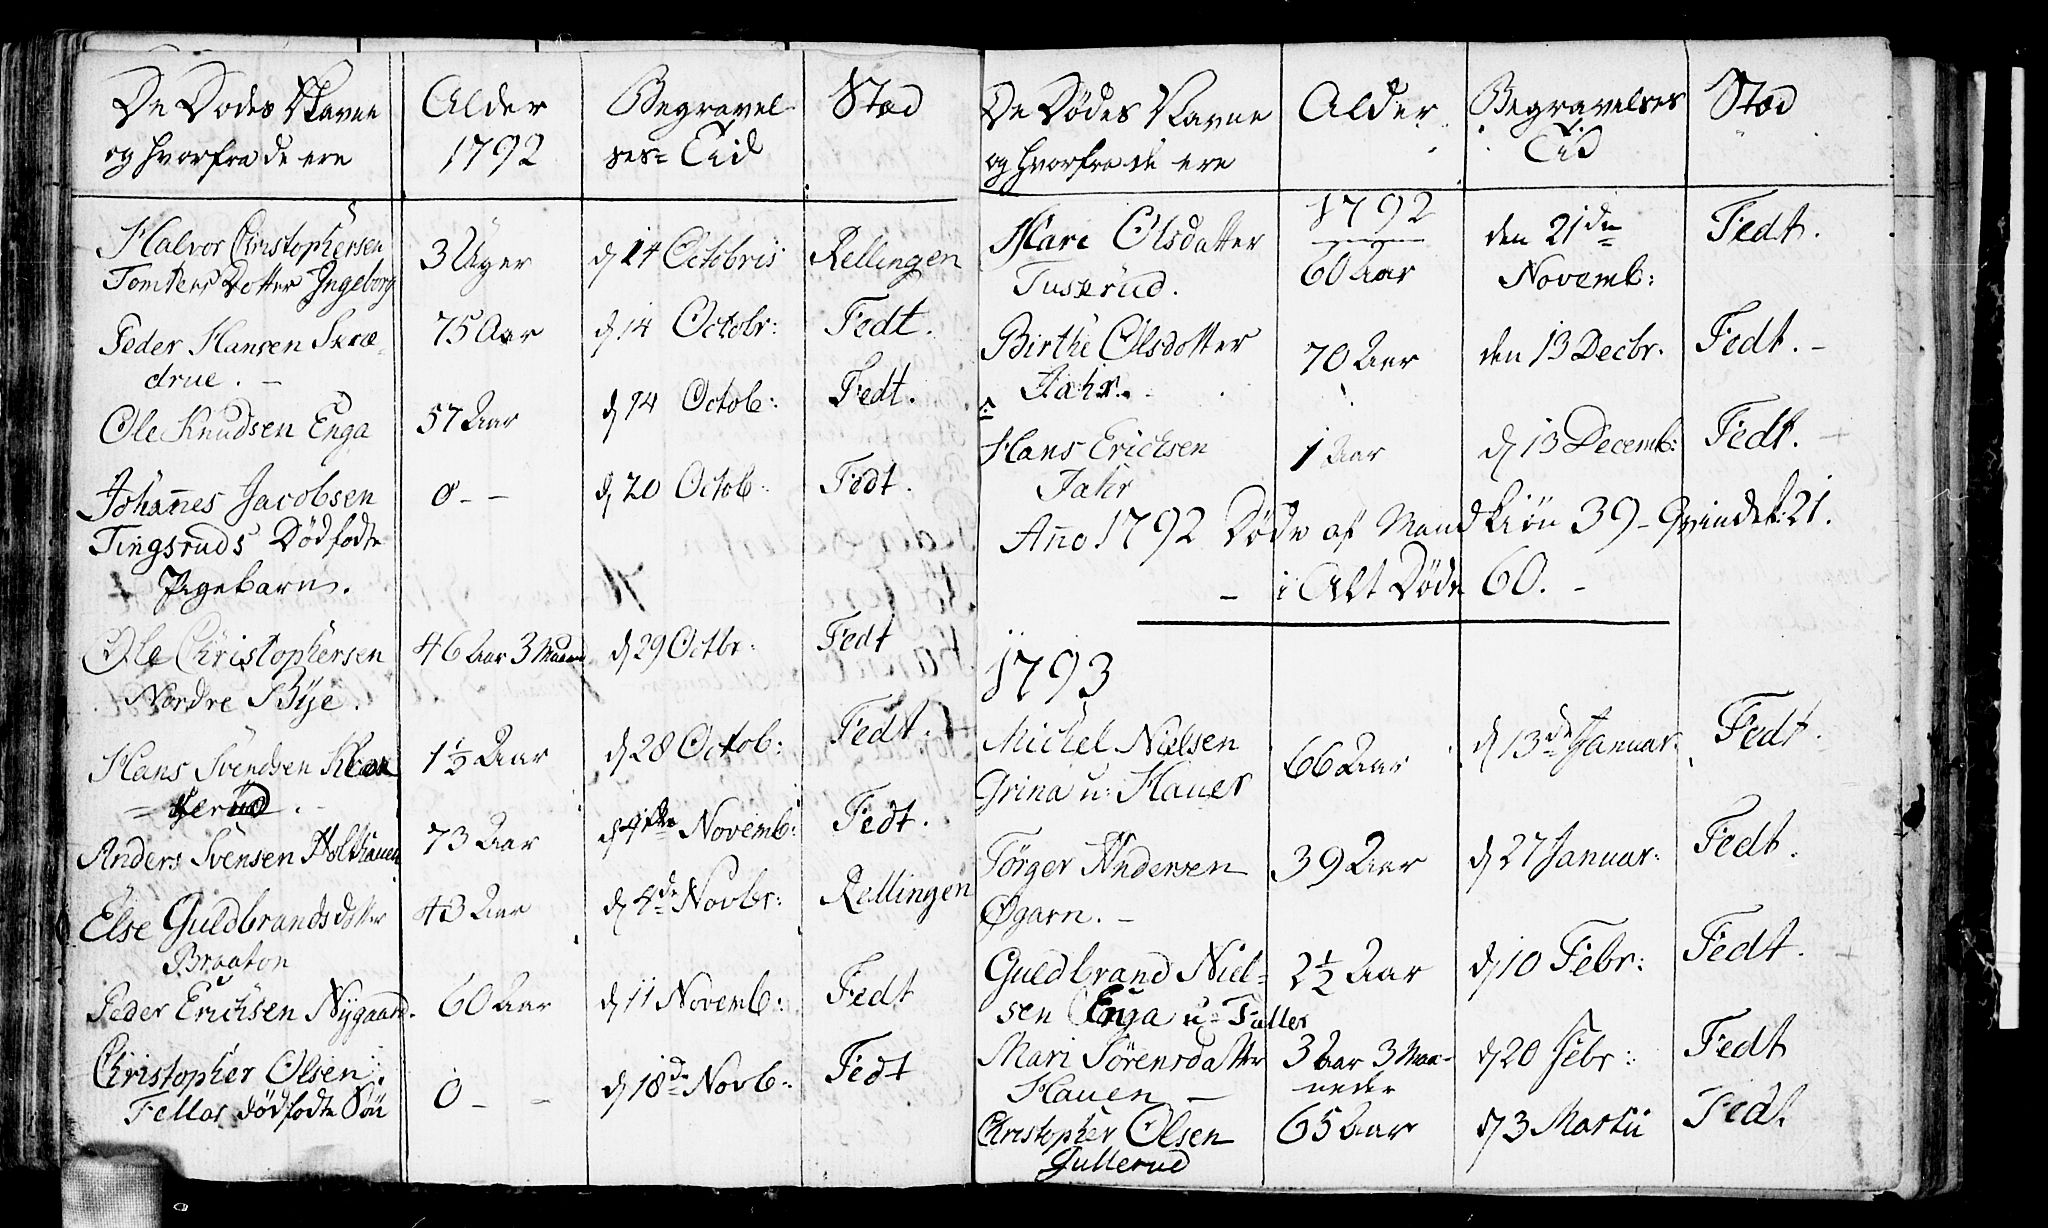 De Dødes Navne
og hvorfra de ere
Alder
1792
Begravel
ses= Tid
Stæd
Halvor Christophersen
Tomters Dotter Ingeborg
3 Uger
d 14 Octobris
Rellingen
Peder Hansen Skræ-
drue. -
75 Aar
d 14 Octobr:
Fedt.
Ole Knudsen Enga
57 Aar
d 14 Octob:
Fedt.
Johannes Jacobsen
Tingsruds Dødfødte
Pigebarn.
0 - -
d 20 Octob:
Fedt.
Ole Christophersen
Nordre Bye.
46 Aar 3 Maan
d 29 Octbr:
Fedt
Hans Svendsen
- gerud. -
1½ Aar
d 28 Octob:
Fedt.
Anders Svensen Holthauen
73 Aar
Novemb:
Fedt.
Else Guldbrandsdotter
Braaton
43 Aar
d 4de Novbr:
Rellingen
Peder Erichsen Nygaard.
60 Aar
d 11 Novemb:
Fedt
Christopher Olsen
Fellos dødfødte Søn
0 - -
d 18de Novb:
Fedt
De Dødes Navne
og hvorfra de ere
Alder
Begravelses
Tid
Stæd
1792
Mari Olsdatter
Tuserud.
60 Aar
den 21de
Novemb:
Fedt.
Birthe Olsdotter
Fahr.
70 Aar
den 13 Decbr.
Fedt. -
Hans Erichsen
Fahr
1 Aar
d 13 Decemb:
Fedt.
Año 1792 Døde af Mandkiøn 39 - Qvindek: 21.
- i Alt Døde 60. -
1793
Michel Nielsen
Grina u: Hauer
66 Aar
d 13de Januar.
Fedt.
Törger Andersen
Øgarn. -
39 Aar
d 27 Januar:
Fedt.
Guldbrand Niel=
sen Enga u= Fallet
2½ Aar
d 10 Febr:
Fedt.
Mari Sörensdatter
Hauen -
3 Aar 3 Maa-
neder
d 20 Febr:
Fedt
Christopher Olsen
Gullerud
65 Aar
d 3 Martii
Fedt.